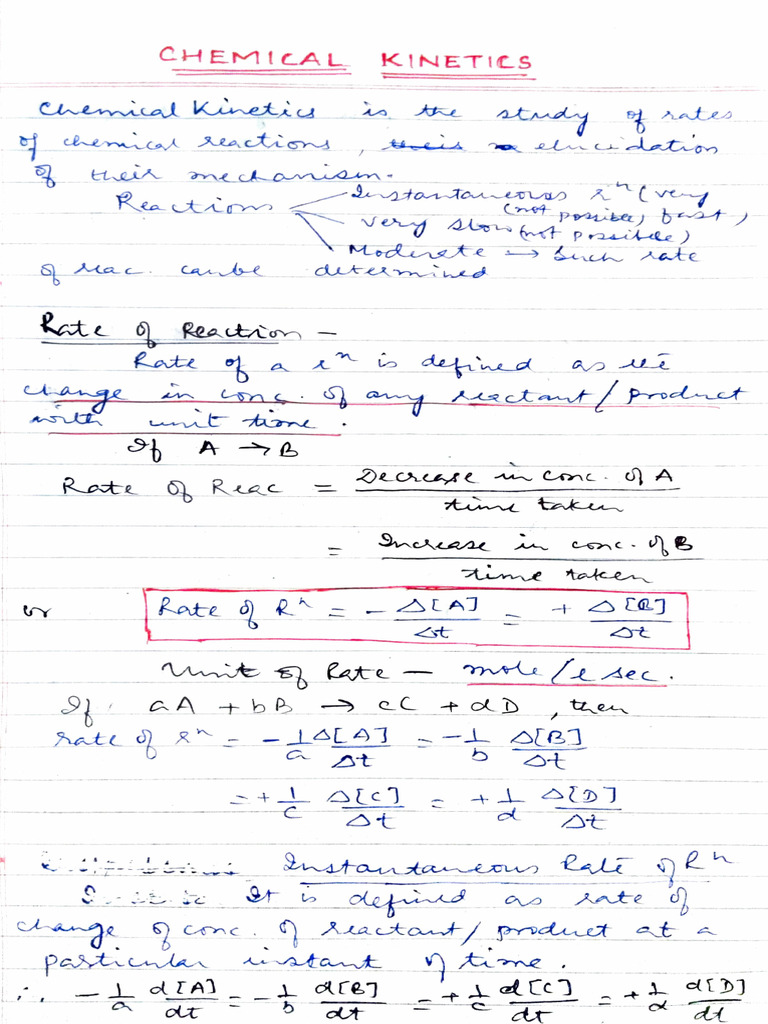 CHEMICAL KINETICS
Chemical Kinetics is the study of rates
of chemical reactions, elucidation
of their mechanism.
Reactions Instantaneous rⁿ (very
(not possible) fast,
very slow (not possible)
Moderate → Such rate
of reac. can be determined
Rate of Reaction —
Rate of a rⁿ is defined as the
change in conc. of any reactant/product
with unit time.
If A → B
Rate of Reac = Decrease in conc. of A / time taken
= Increase in conc. of B / time taken
or Rate of Rⁿ = - Δ[A]/Δt = + Δ[B]/Δt
Unit of Rate — mole/l sec.
If aA + bB → cC + dD, then
rate of rⁿ = - 1/a Δ[A]/Δt = - 1/b Δ[B]/Δt
= + 1/c Δ[C]/Δt = + 1/d Δ[D]/Δt
Instantaneous Rate of Rⁿ
It is defined as rate of
change of conc. of reactant/product at a
particular instant of time.
∴ - 1/a d[A]/dt = - 1/b d[B]/dt = + 1/c d[C]/dt = + 1/d d[D]/dt